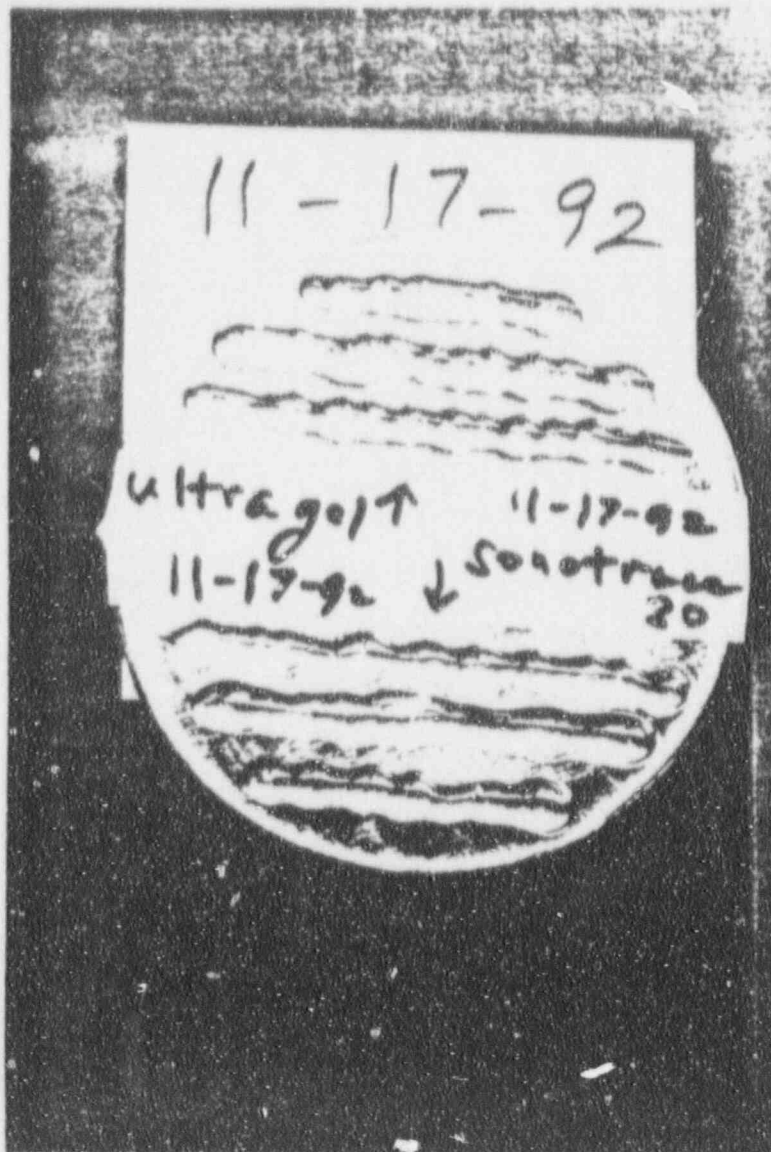 11-17-92
ultragel↑ 11-17-92
11-17-92 ↓ sonotrace
20